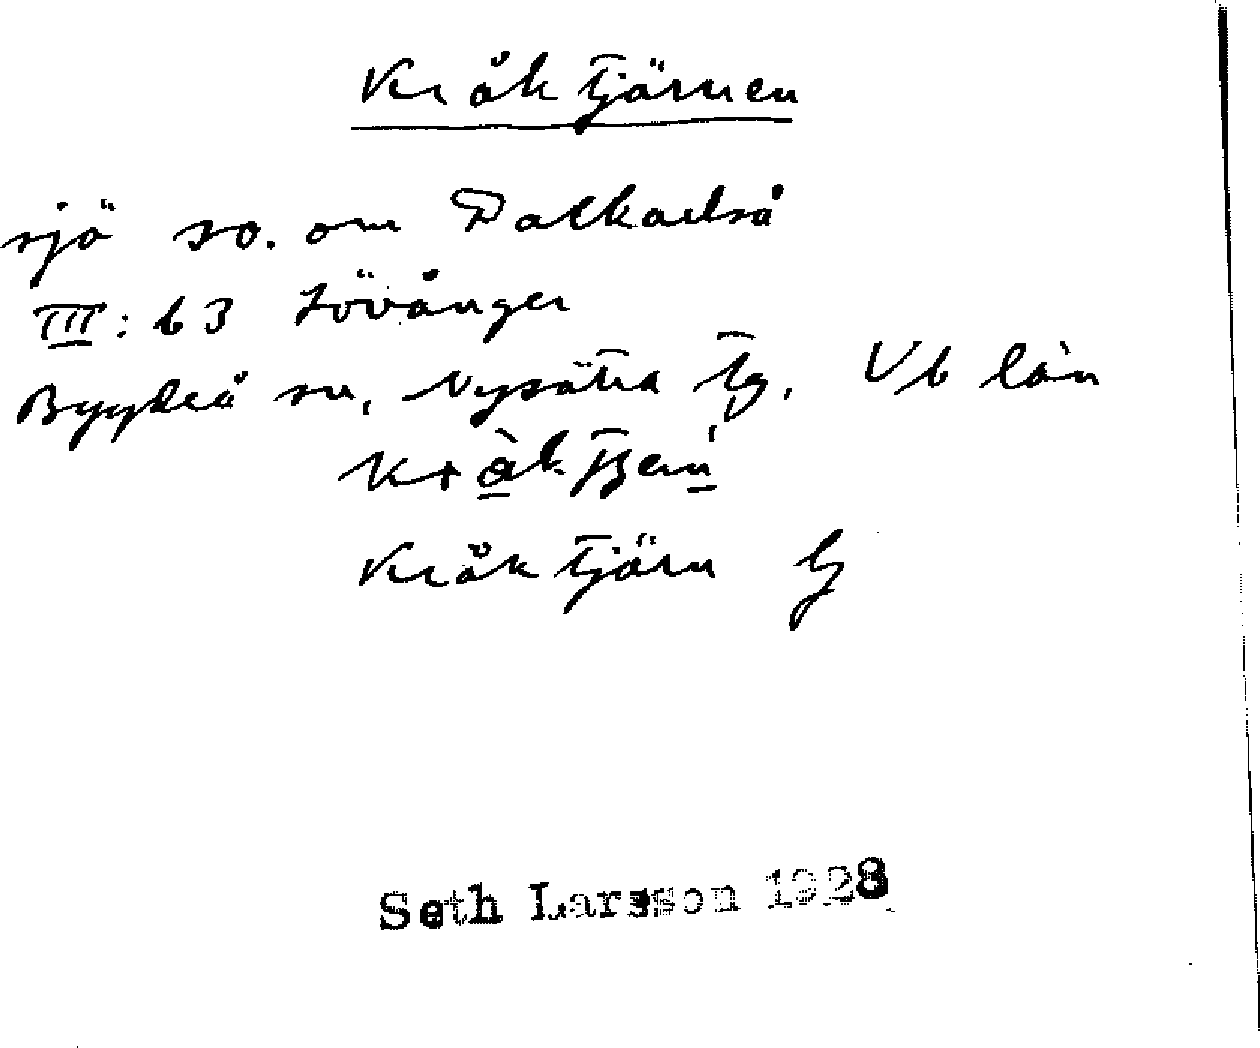 Kråktjärnen
sjö so. om Dalkarlså
III: b 3 Lövånger
Bygdeå sn, Nysätra tg, Vb län
Kråktjärn
Seth Larsson 1928